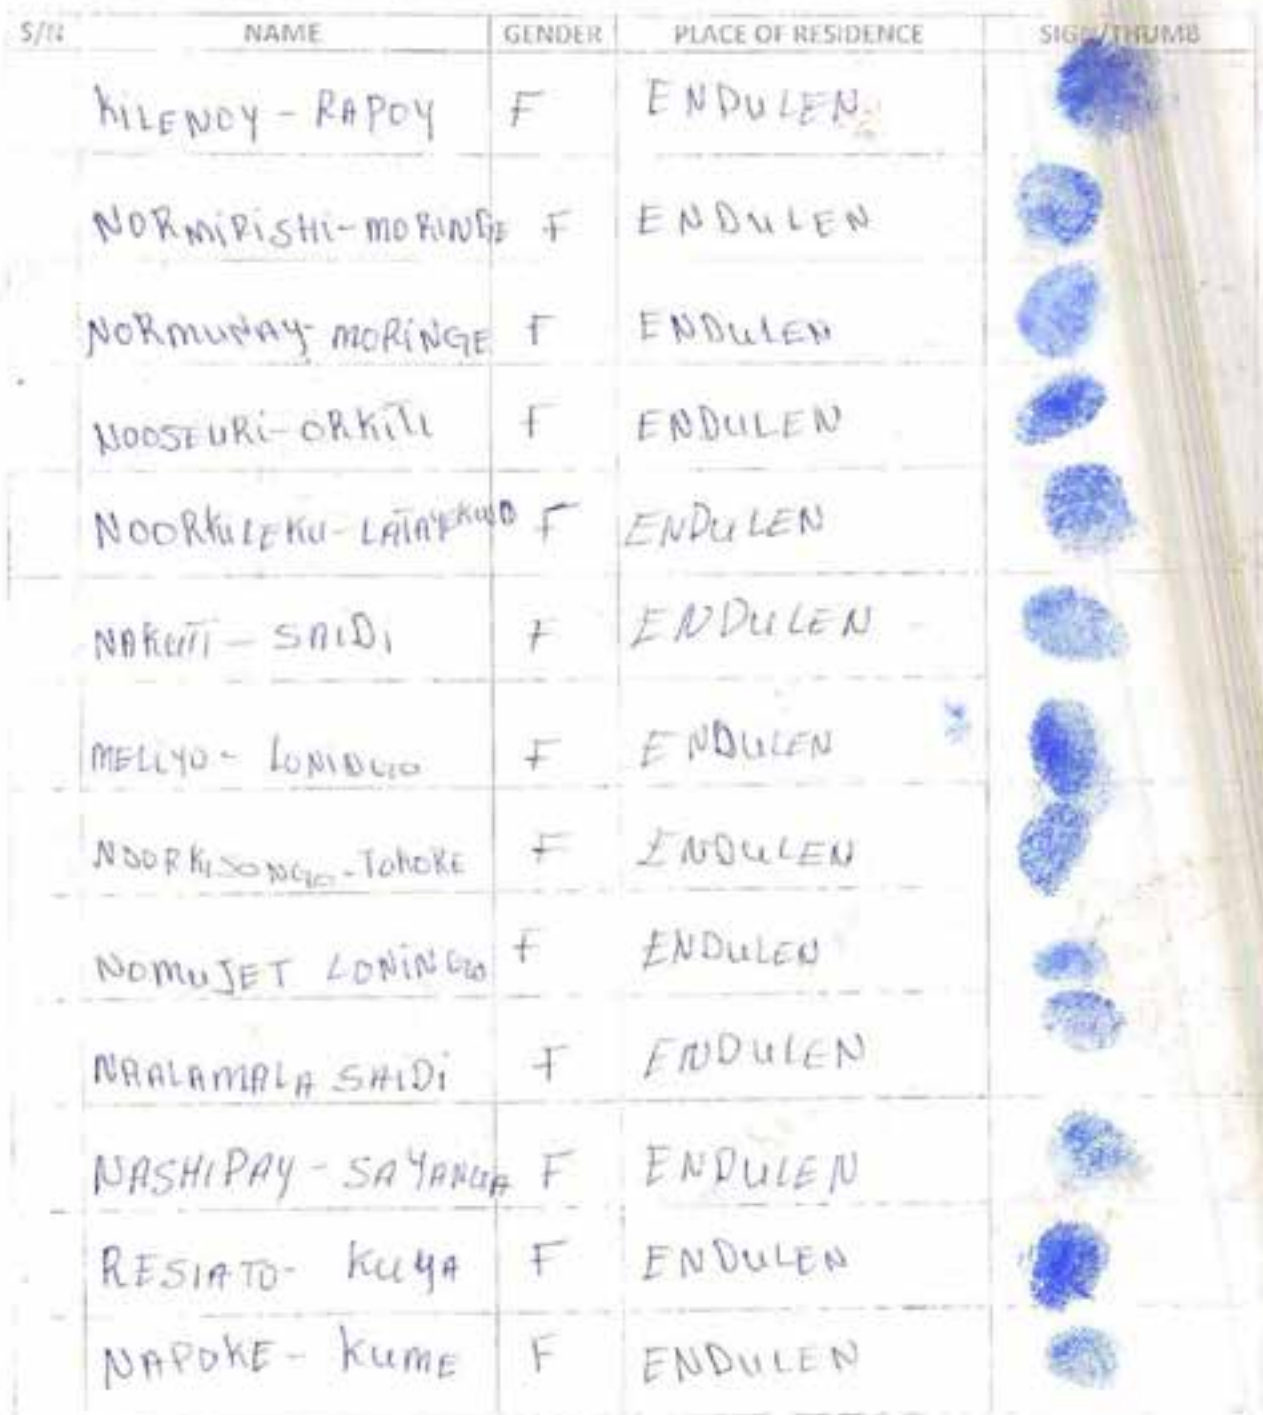 S/N NAME GENDER PLACE OF RESIDENCE SIGN/THUMB
KILENOY - RAPOY F ENDULEN
NORMIRISHI - MORINGE F ENDULEN
NORMUNAY - MORINGE F ENDULEN
NOOSEURI - ORKITI F ENDULEN
NOORKULEKU - F ENDULEN
NAKUTI - SAIDI F ENDULEN
MELLYO - F ENDULEN
NOORKISONGO - TOKOKE F ENDULEN
NOMUJET LONINGO F ENDULEN
NAALAMALA SAIDI F ENDULEN
NASHIPAY - F ENDULEN
RESIATO - KUYA F ENDULEN
NAPOKE - KUME F ENDULEN